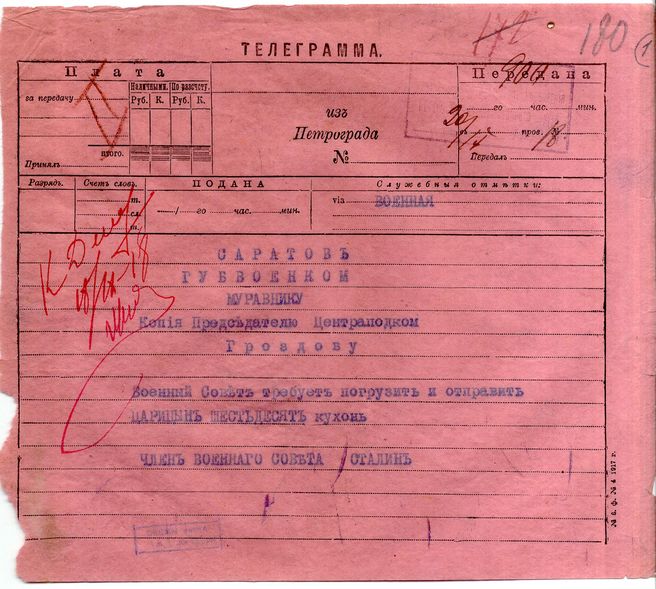 172
180
1
ТЕЛЕГРАММА.
Плата
за передачу
Наличными. По разсчету.
Руб. К. Руб. К.
итого.
Принял
изъ
Петрограда
№
Передана
900
го час. мин.
20/
пров. № 18
Передал
Разрядъ. Счетъ словъ.
т.
сл.
т.
ПОДАНА
/ го час. мин.
Служебныя отмѣтки:
via ВОЕННАЯ
К Делу
18/IX-18
САРАТОВЪ
ГУБВОЕНКОМ
МУРАВНИКУ
Копія Предсѣдателю Центраподком
Гроздову
Военный Совѣтъ требуетъ погрузить и отправить
ЦАРИЦЫНЪ ШЕСТЬДЕСЯТЪ кухонь
ЧЛЕНЪ ВОЕННАГО СОВѢТА СТАЛИНЪ
№ 6. ф. № 4 1917 г.